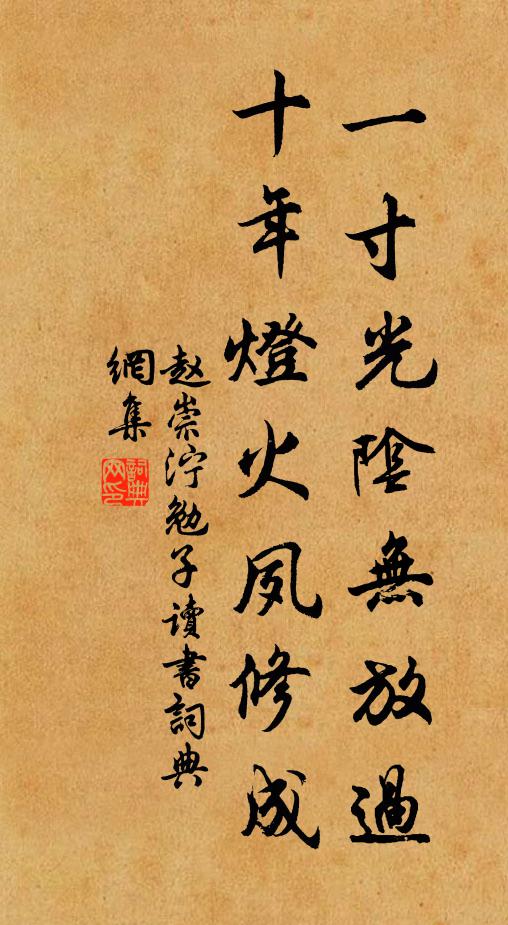 一寸光陰無放過
十年燈火夙修成
赵崇泞勉子讀書詞典
網集
詞典
网印